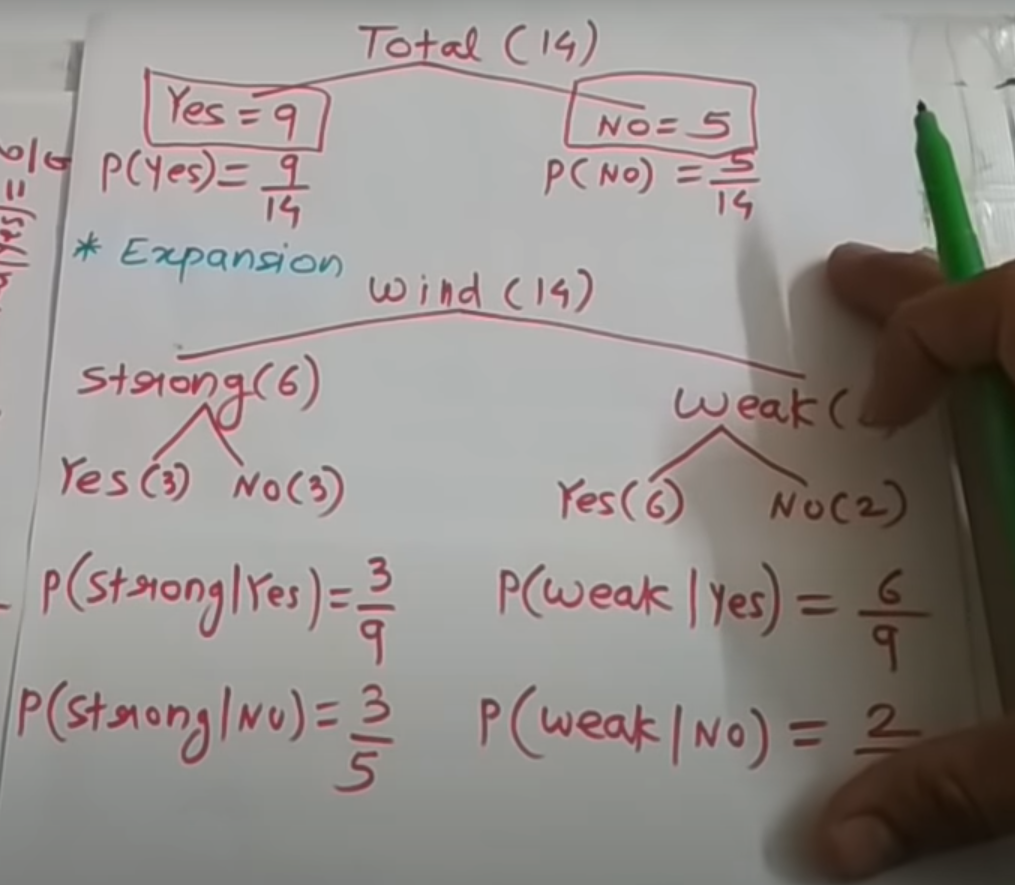 Total (14)
Yes = 9
No = 5
P(Yes) = 9/14
P(No) = 5/14
* Expansion
Wind (14)
Strong (6)
Weak (
Yes (3) No (3)
Yes (6) No (2)
P(Strong|Yes) = 3/9
P(Weak|Yes) = 6/9
P(Strong|No) = 3/5
P(Weak|No) = 2